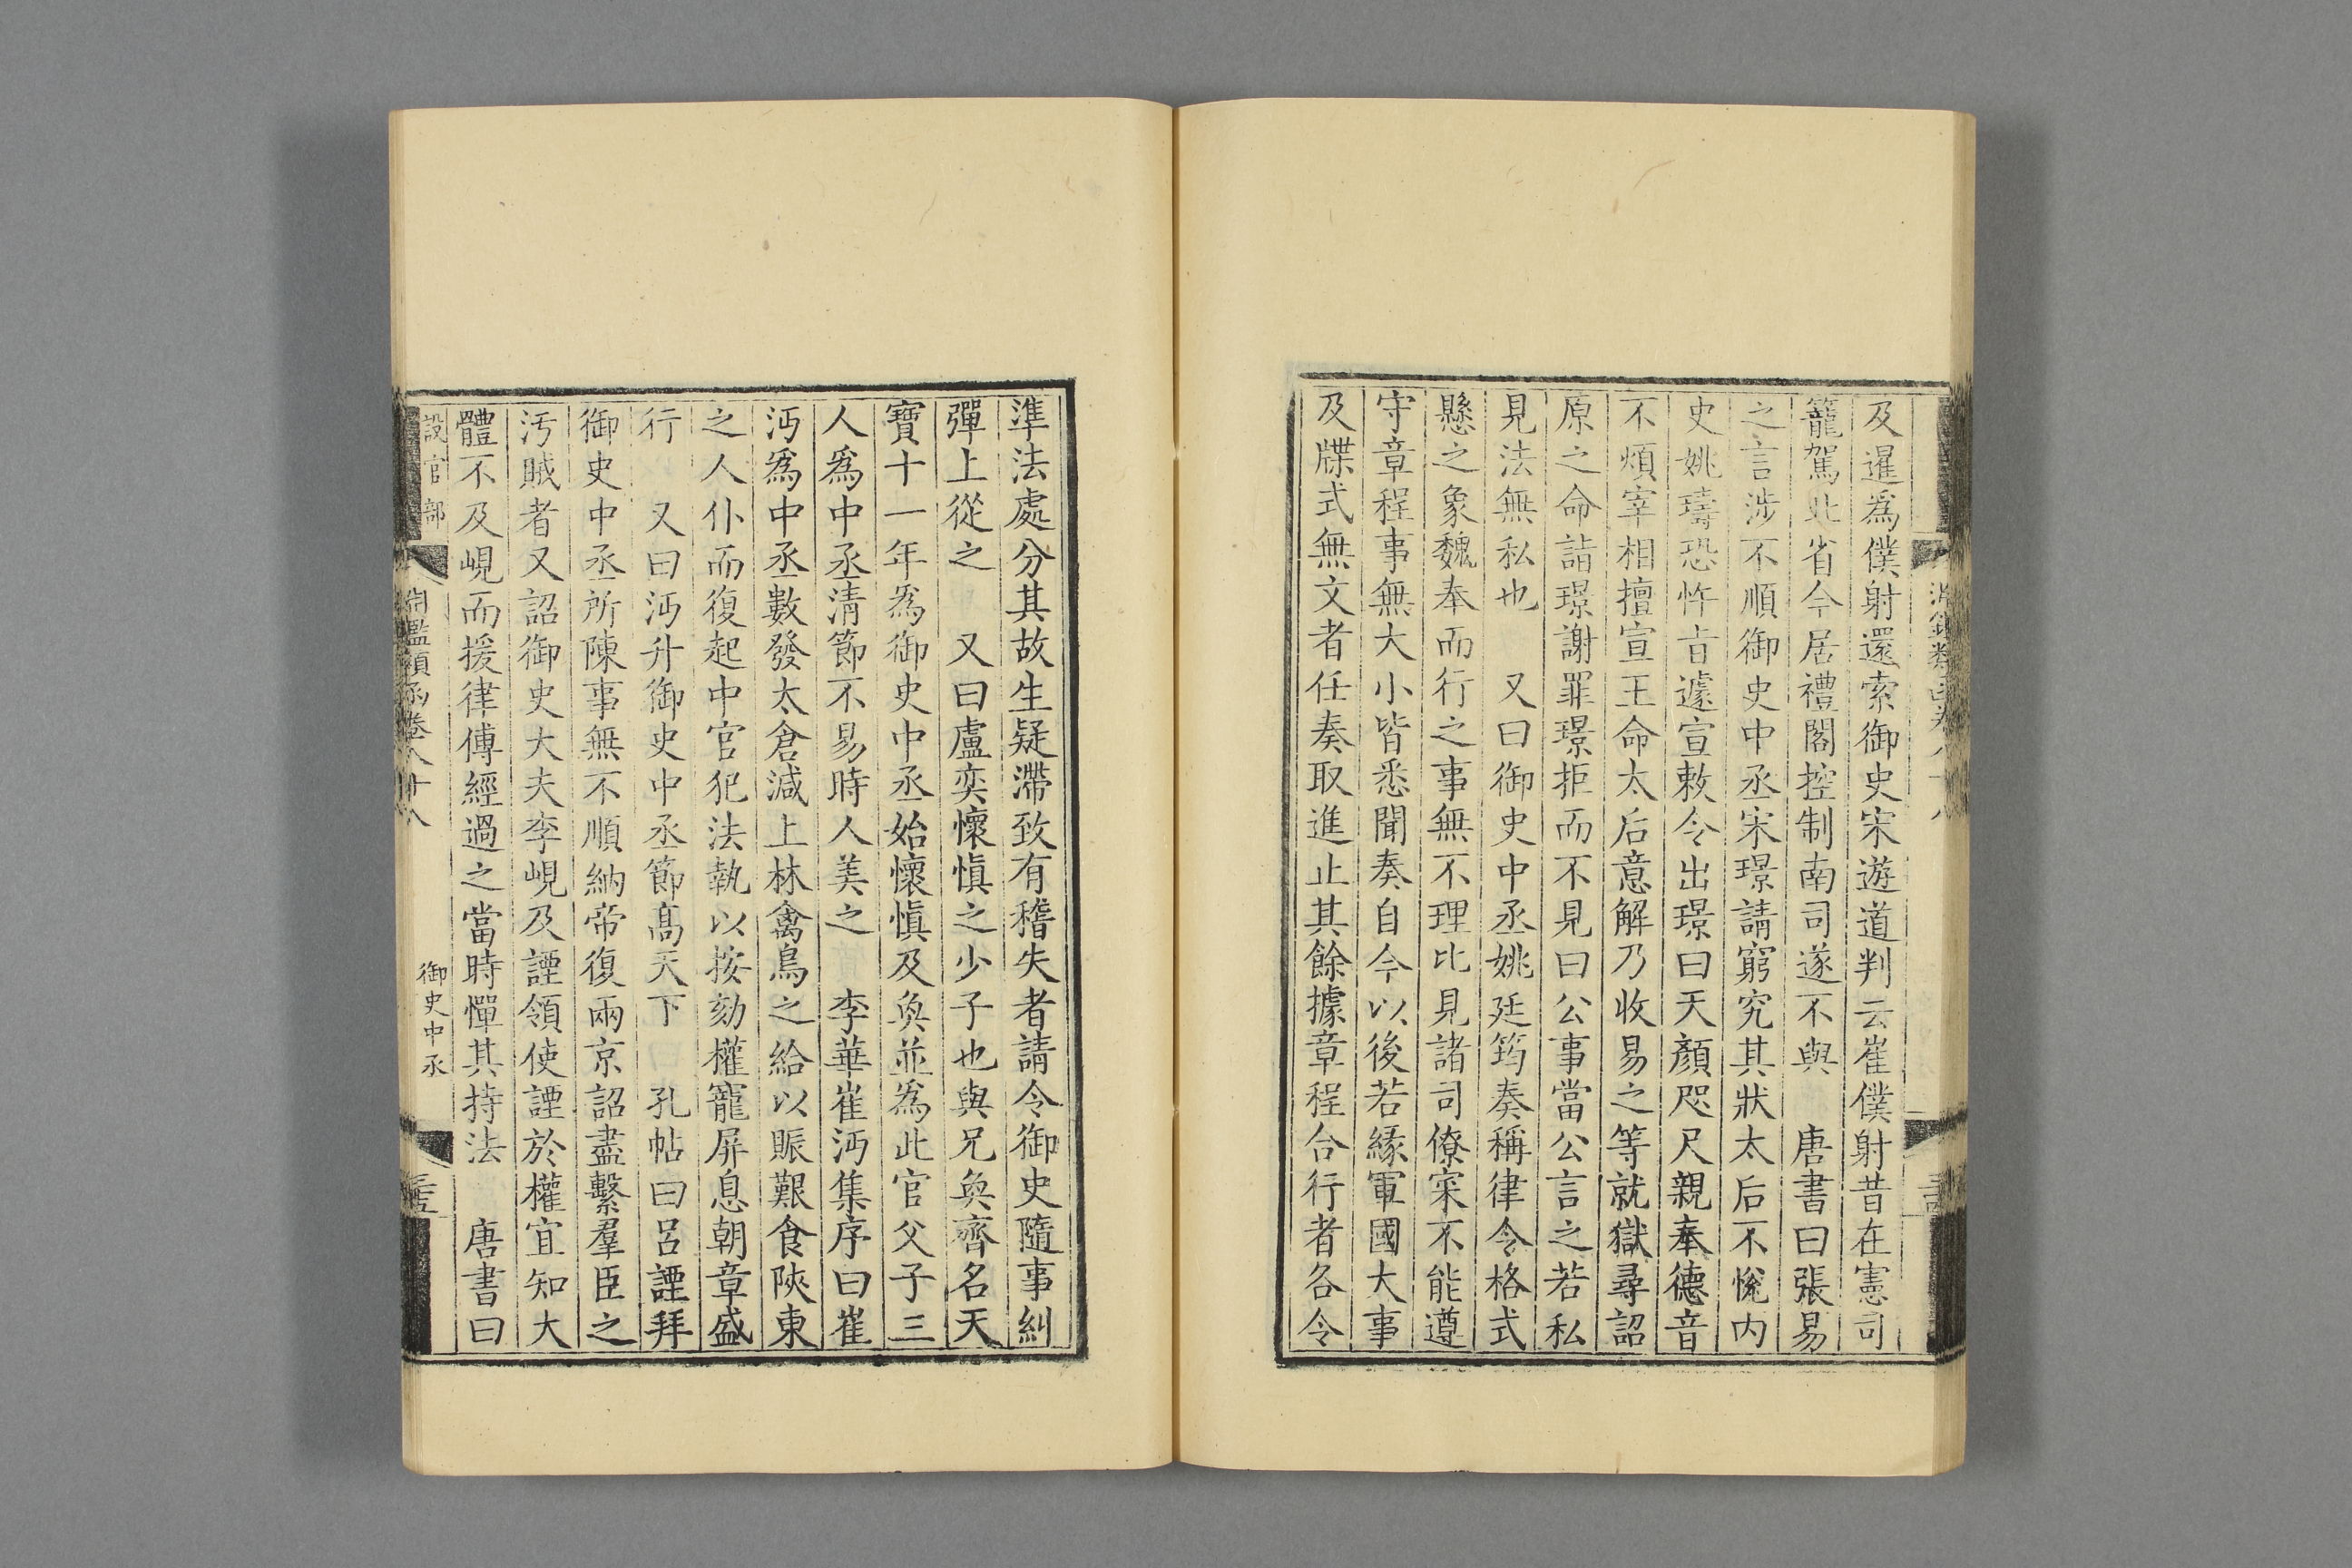 及暹爲僕射還索御史宋遊道判云崔僕射昔在憲司
寵駕此省今居禮閣控制南司遂不與　唐書曰張易
之言涉不順御史中丞宋璟請窮究其狀太后不悅内
史姚璹恐忤旨遽宣敕令出璟曰天顏咫尺親奉德音
不煩宰相擅宣王命太后意解乃收易之等就獄尋詔
原之命詣璟謝罪璟拒而不見曰公事當公言之若私
見法無私也　又曰御史中丞姚廷筠奏稱律令格式
懸之象魏奉而行之事無不理比見諸司僚寀不能遵
守章程事無大小皆悉聞奏自今以後若緣軍國大事
及牒式無文者任奏取進止其餘據章程合行者各令
準法處分其故生疑滯致有稽失者請令御史隨事糾
彈上從之　又曰盧奕懷慎之少子也與兄奐齊名天
寶十一年爲御史中丞始懷慎及奐並爲此官父子三
人爲中丞清節不易時人美之　李華崔沔集序曰崔
沔爲中丞數發太倉減上林禽鳥之給以賑艱食陝東
之人仆而復起中官犯法執以按劾權寵屏息朝章盛
行　又曰沔升御史中丞節高天下　孔帖曰呂諲拜
御史中丞所陳事無不順納帝復兩京詔盡繫羣臣之
汚賊者又詔御史大夫李峴及諲領使諲於權宜知大
體不及峴而援律傅經過之當時憚其持法　唐書曰
設官部
淵鑑類函卷八十八
御史中丞